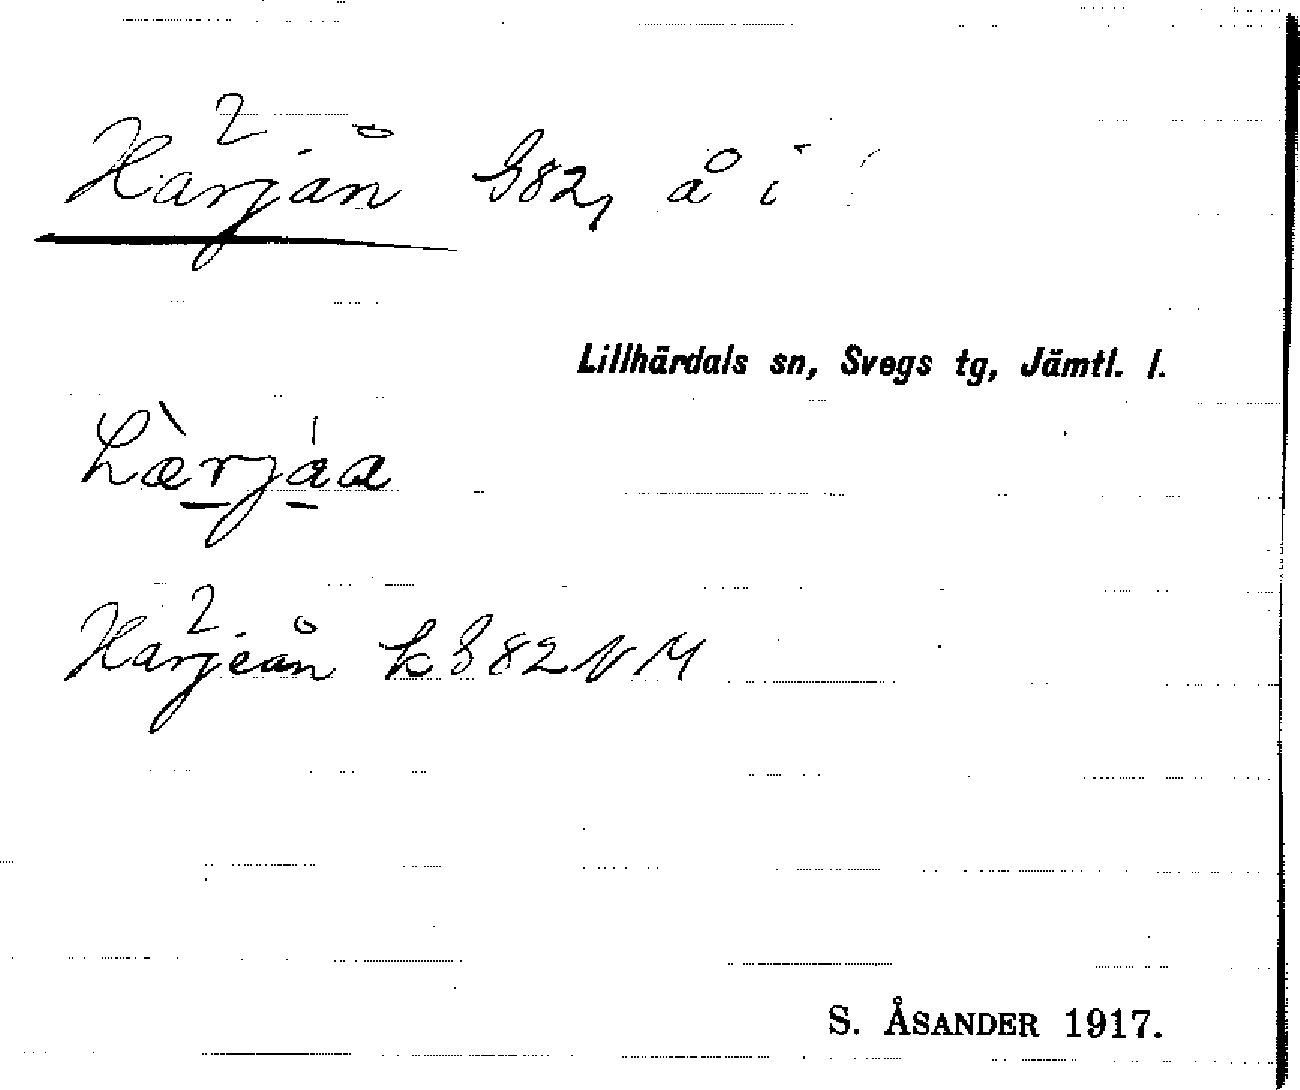 Härjån G82, å i
Lillhärdals sn, Svegs tg, Jämtl. l.
Lærjáa
Härjeån k G82NM
S. ÅSANDER 1917.